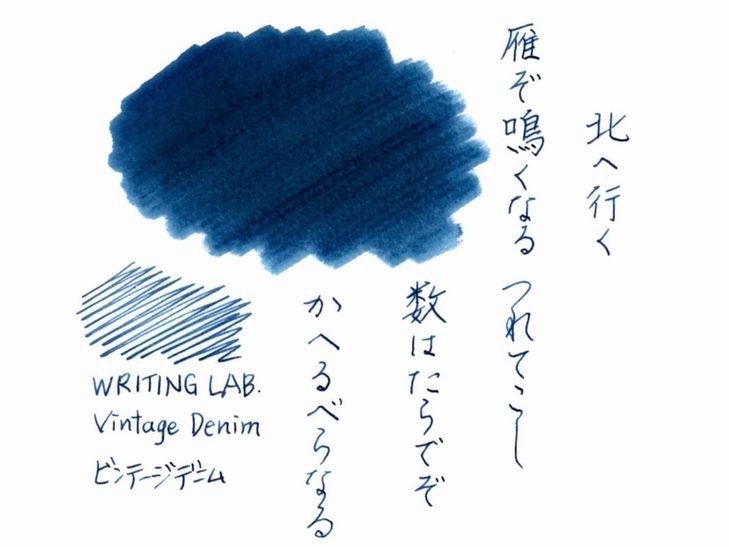 北へ行く
雁ぞ鳴くなる つれてこし
数はたらでぞ
かへるべらなる
WRITING LAB.
Vintage Denim
ビンテージデニム